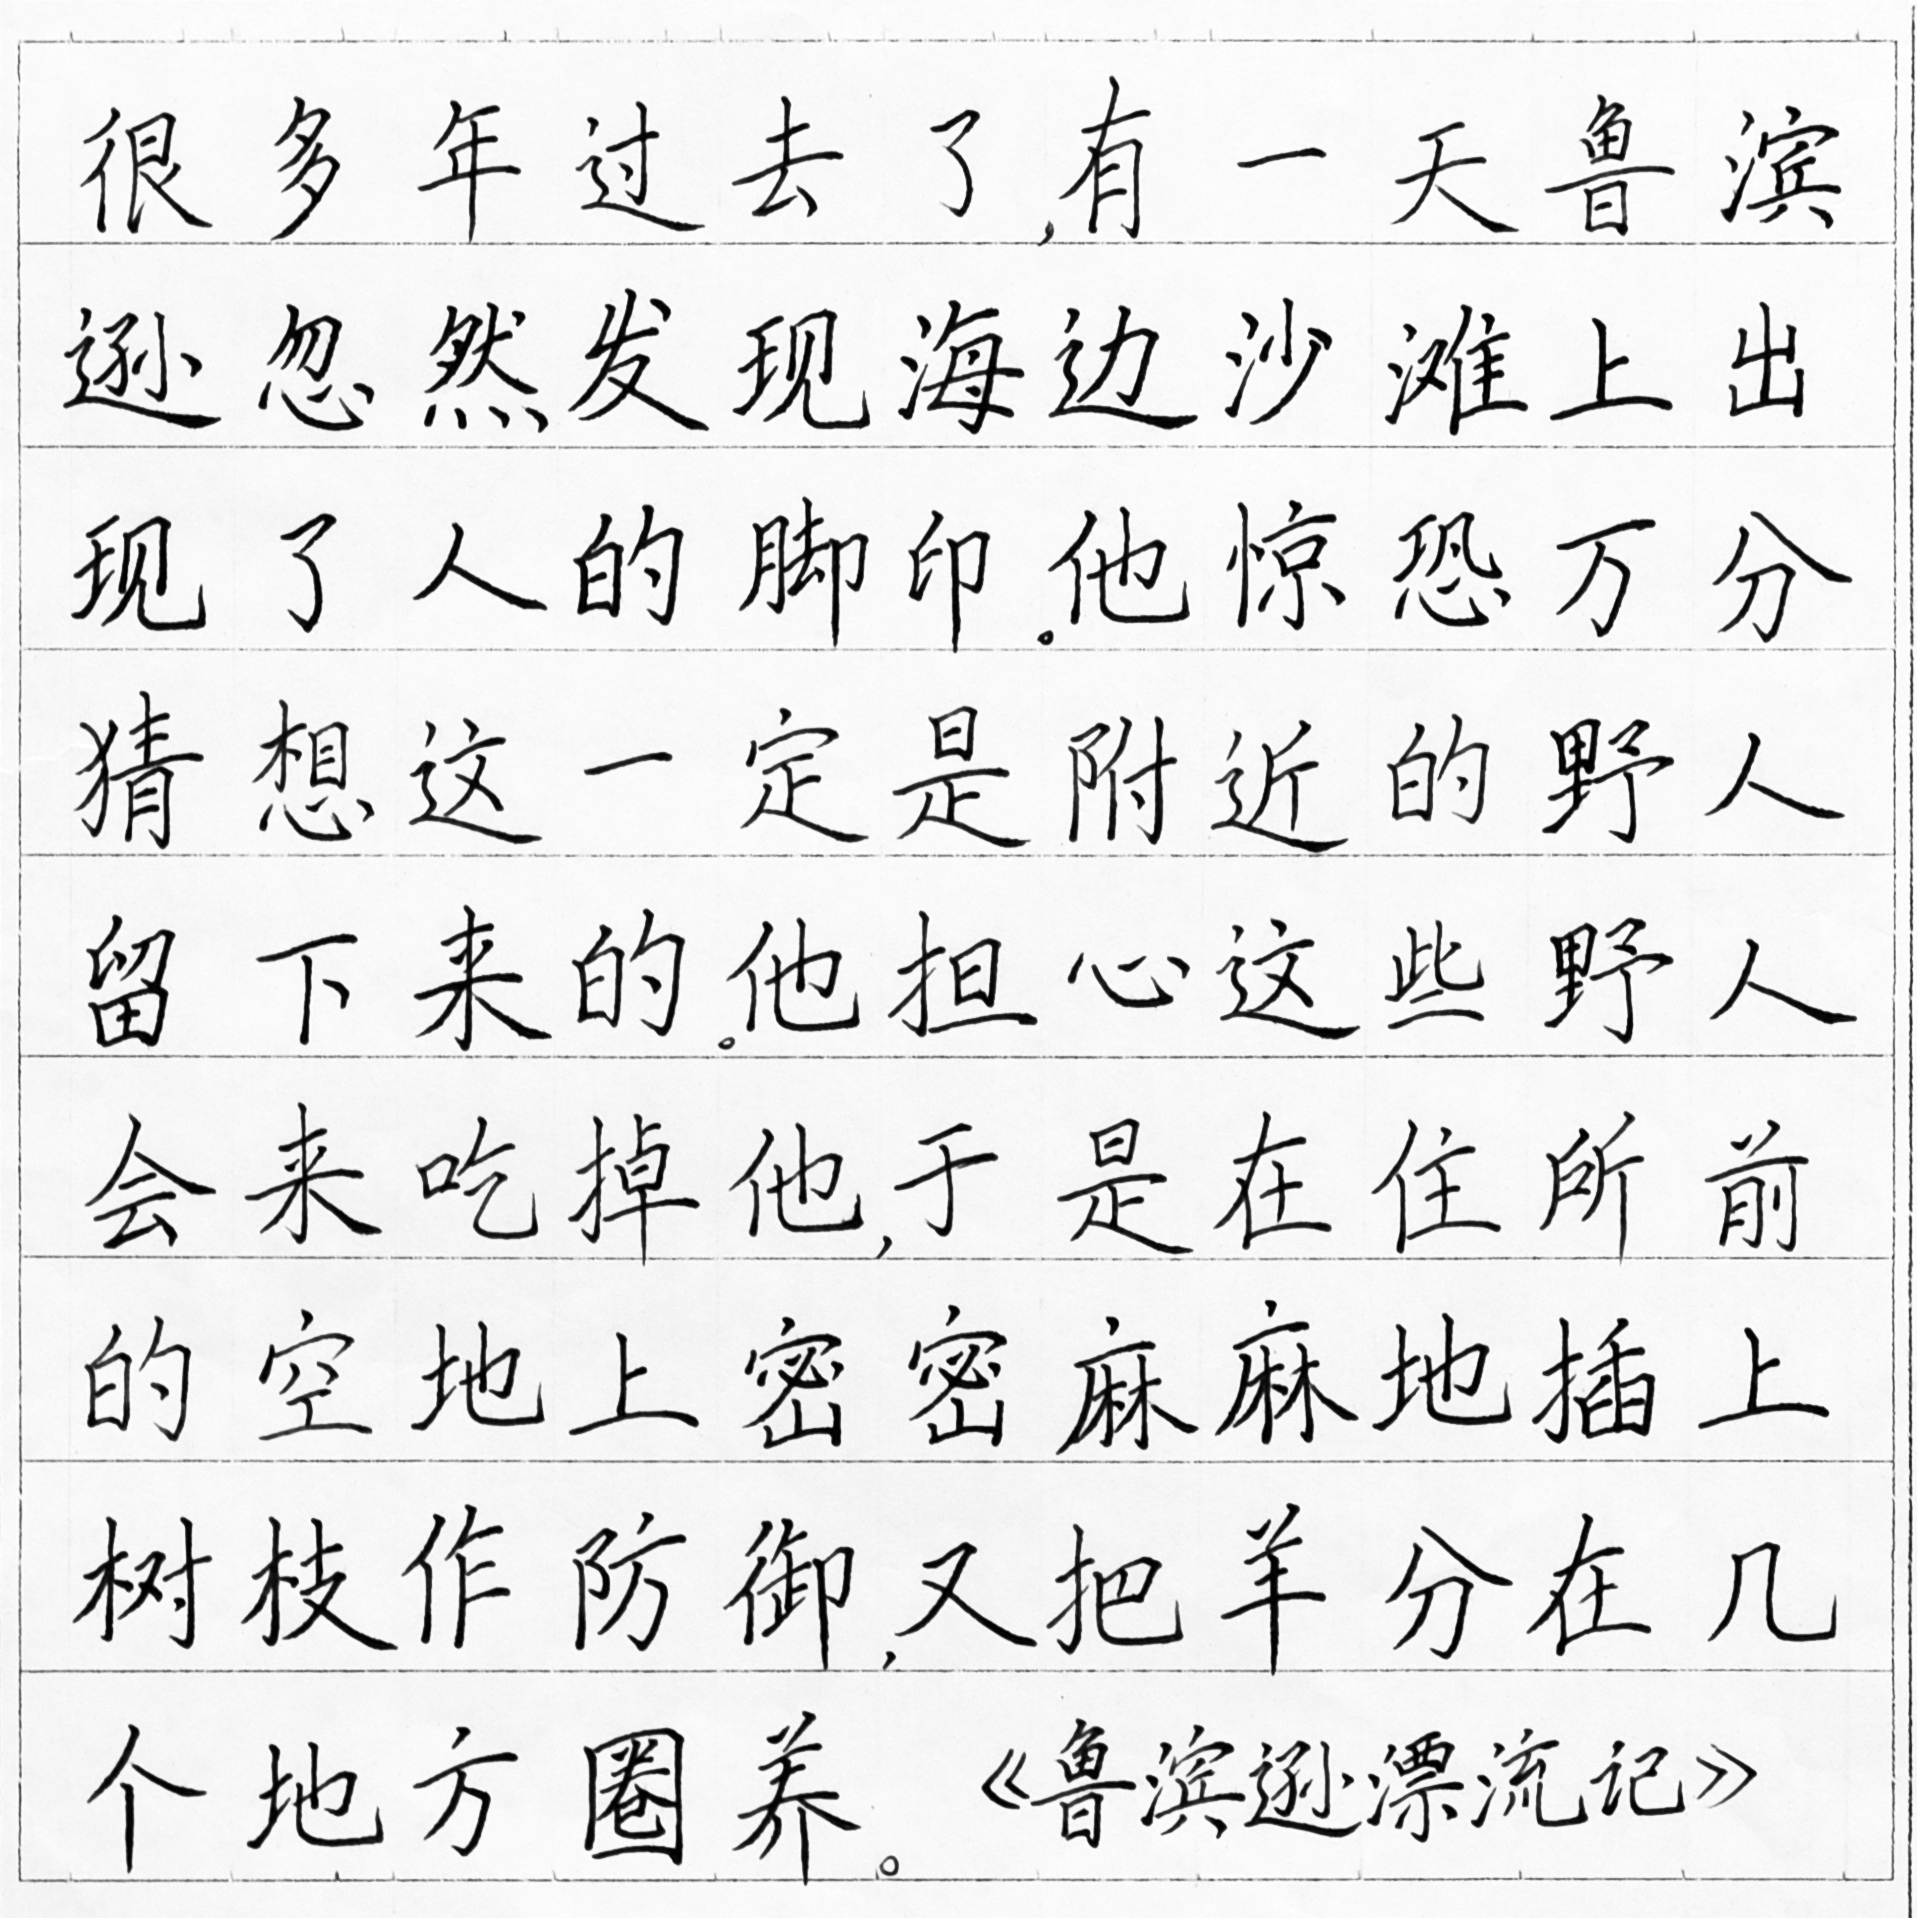 很多年过去了,有一天鲁滨
逊忽然发现海边沙滩上出
现了人的脚印。他惊恐万分
猜想这一定是附近的野人
留下来的。他担心这些野人
会来吃掉他,于是在住所前
的空地上密密麻麻地插上
树枝作防御,又把羊分在几
个地方圈养。《鲁滨逊漂流记》